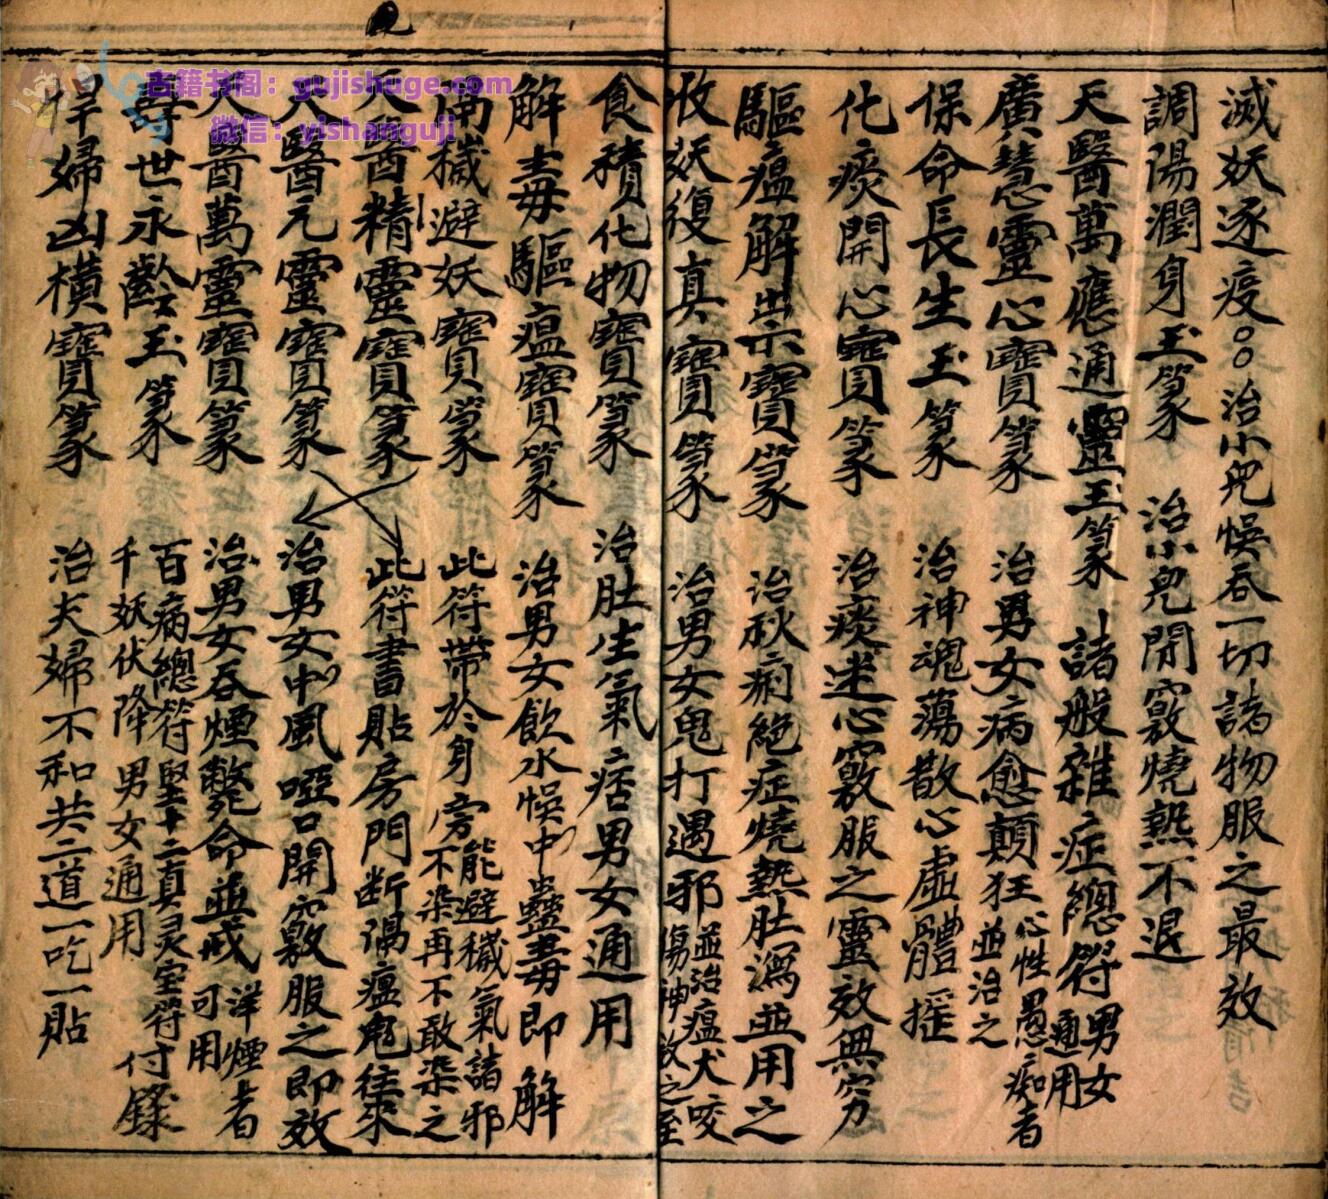 滅妖逐疫○○治小兒悞吞一切諸物服之最效
調陽潤身玉篆 治小兒閉竅燒熱不退
天醫萬應通靈玉篆 諸般雜症總符男女通用
廣慧靈心寶篆 治男女病愈顛狂心性愚痴者並治之
保命長生玉篆 治神魂蕩散心虛體搖
化痰開心寶篆 治痰迷心竅服之靈效無穷
驅瘟解祟寶篆 治秋痢絕症燒熱肚瀉並用之
收妖復真寶篆 治男女鬼打遇邪並治瘟犬咬傷神效之至
食積化物寶篆 治肚生氣痞男女通用
解毒驅瘟寶篆 治男女飲水悞中蠱毒即解
穢避妖寶篆 此符帶於身旁能避穢氣諸邪不染再不敢染之
天醫精靈寶篆 此符書貼房門断隔瘟鬼往來
天醫元靈寶篆 治男女中風啞口開竅服之即效
天醫萬靈寶篆 治男女吞煙斃命並戒洋煙者可用
壽世永齡玉篆 百病總符堅十二真灵宝符付錄千妖伏降男女通用
悍婦凶橫寶篆 治夫婦不和共二道一吃一貼
古籍书阁：gujishuge.com
微信：yishanguji